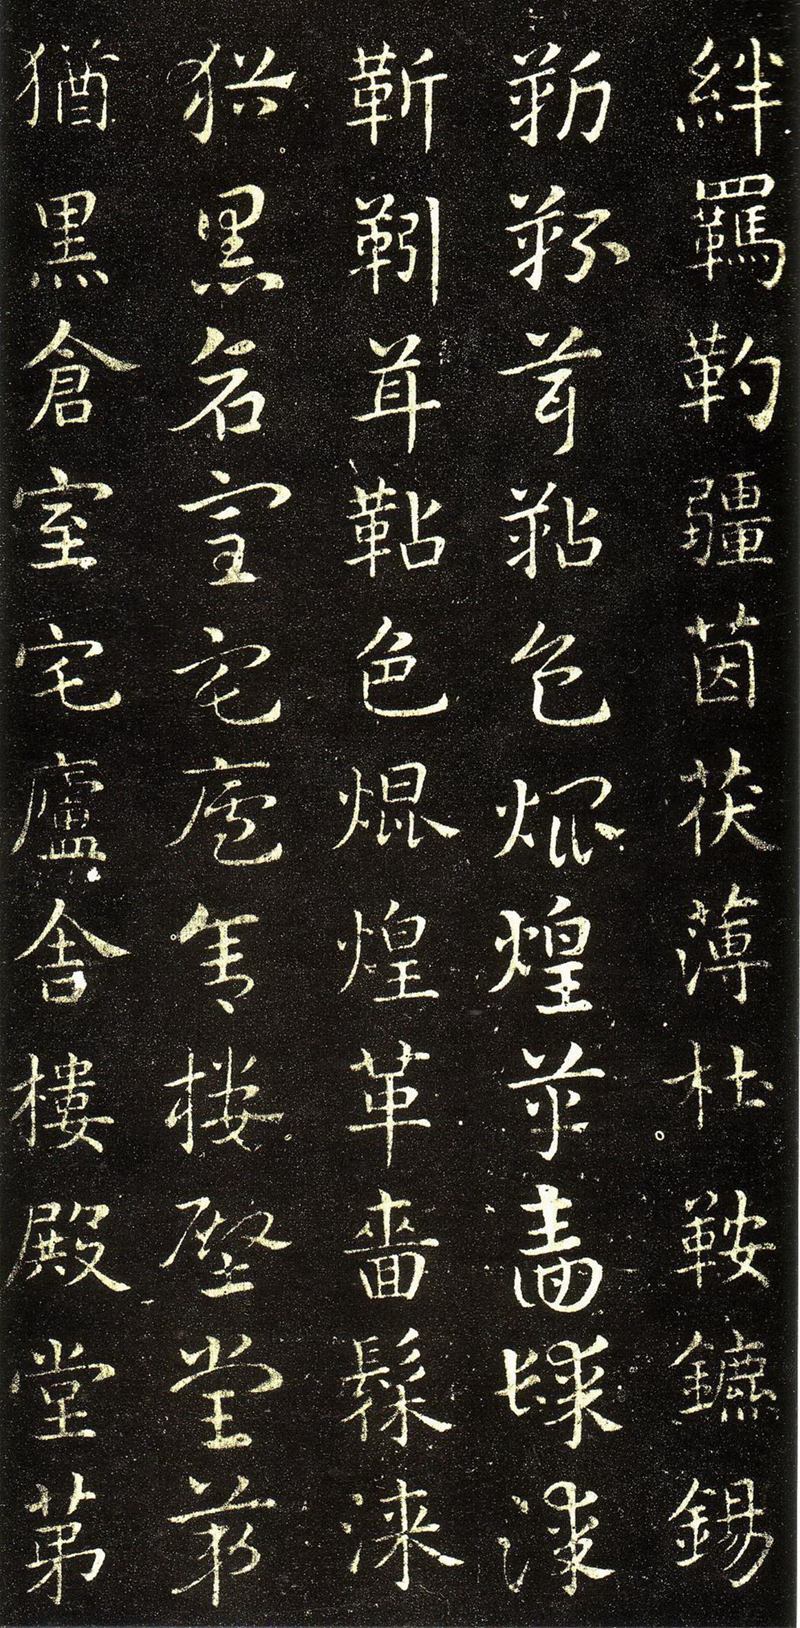 絆羈靮疆茵茯薄杜鞍鑣錫
靳靷茸鞊色焜煌革嗇髹漆
靳靷茸鞊色焜煌革嗇髹漆
猶黑倉室宅廬舍樓壂堂第
猶黑倉室宅廬舍樓殿堂第